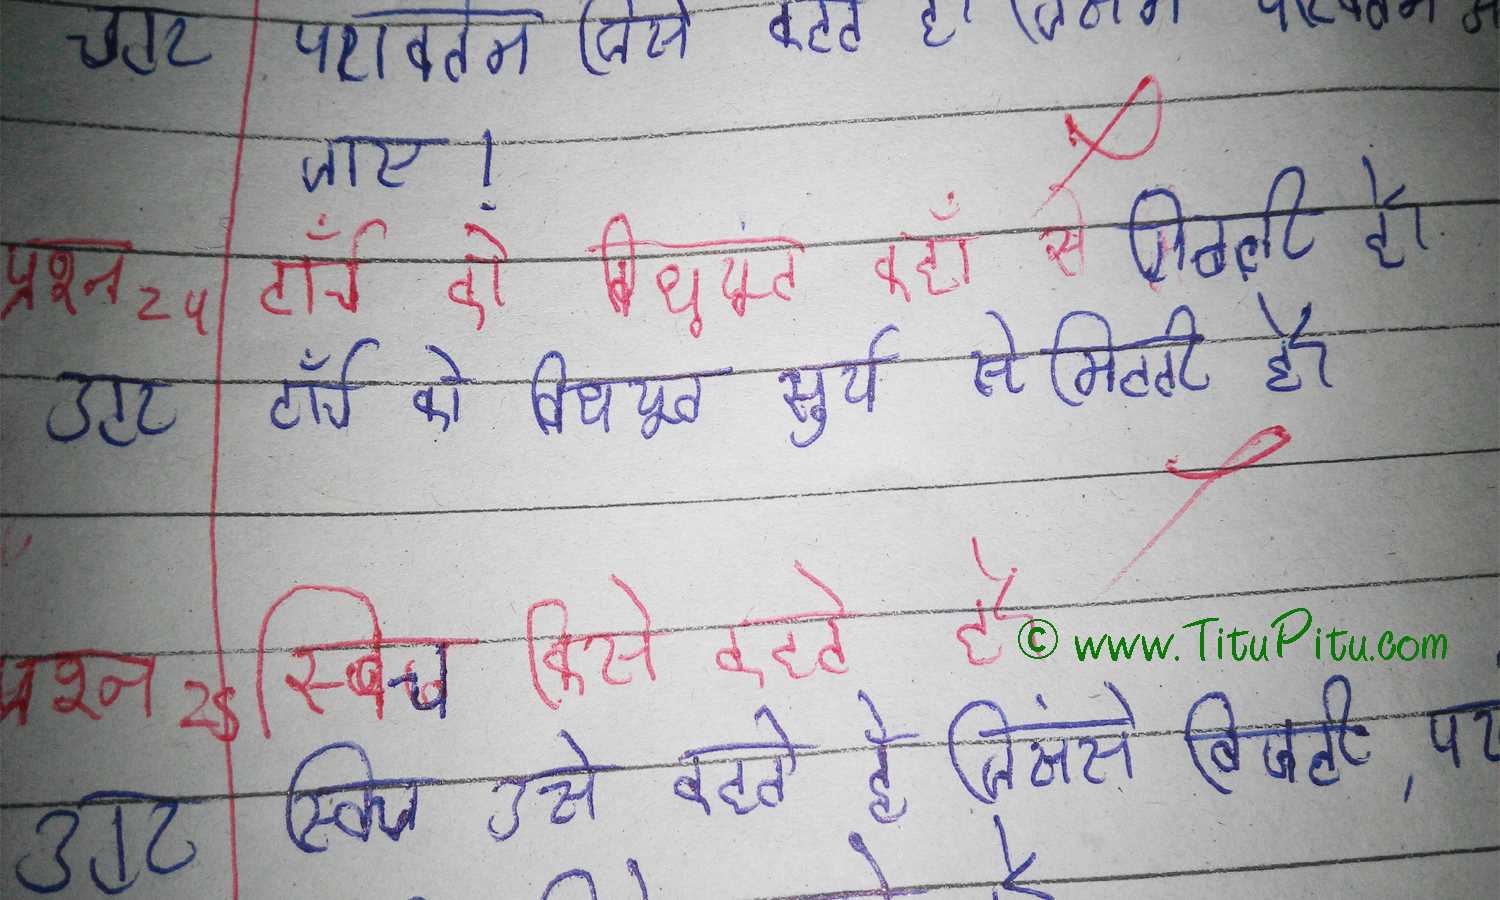 उत्तर परावर्तन जिसे कहते है। जिसमें परिवर्तन
जाए।
प्रश्न 24 टॉर्च को विधयूंत कहाँ से मिलती है।
उत्तर टॉर्च को विधयूत सुर्य से मिलती है।
प्रश्न 25 स्विच किसे कहते है
© www.TituPitu.com
उत्तर स्विच उसे कहते है जिसंसे बिजली,